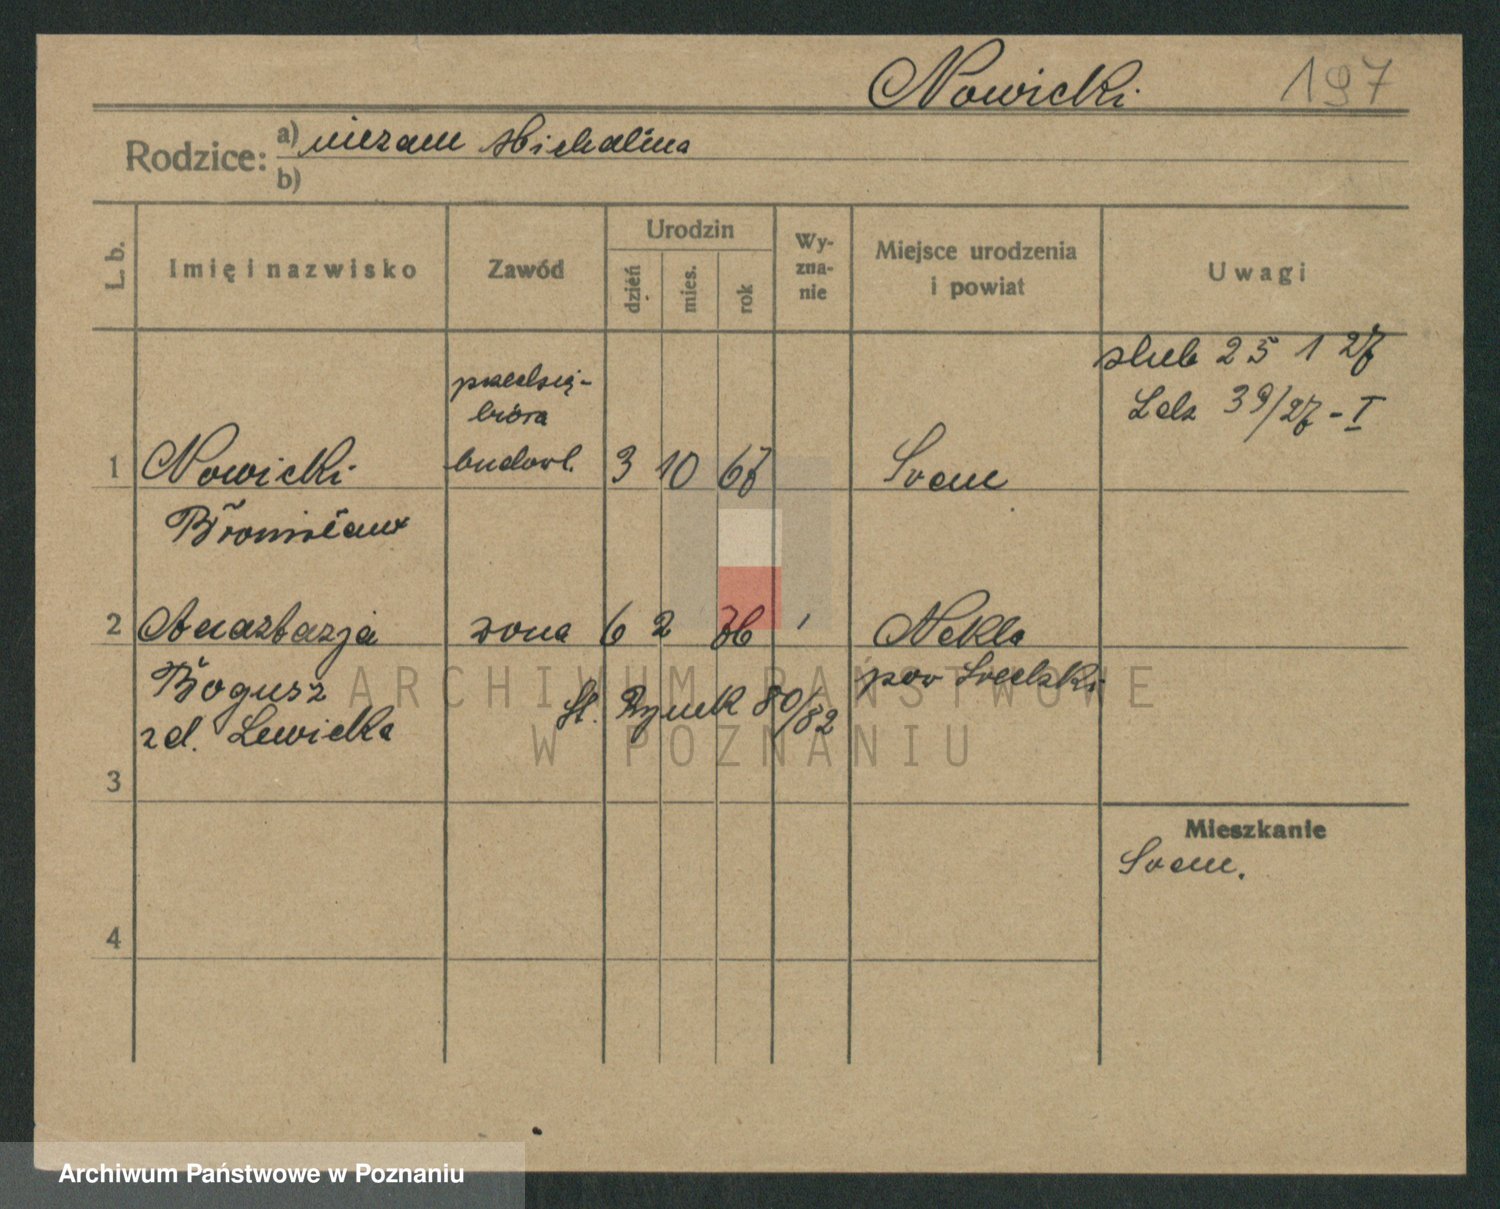 Nowicki 197
Rodzice: a) niezam Michalina
b)
L. b. Imię i nazwisko Zawód Urodzin dzień mies. rok Wy- zna- nie Miejsce urodzenia i powiat Uwagi
ślub 25 1 27
Ldz 39/27 - I
przedsię-
biorca
1 Nowicki budowl. 3 10 67 Srem
Bronisław
2 Anastazja żona 6 2 76 Nekla
Bogusz pow Sredzki
St. Rynek 80/82
zd. Lewicka
3
Mieszkanie
Srem.
4
ARCHIWUM PAŃSTWOWE
W POZNANIU
Archiwum Państwowe w Poznaniu